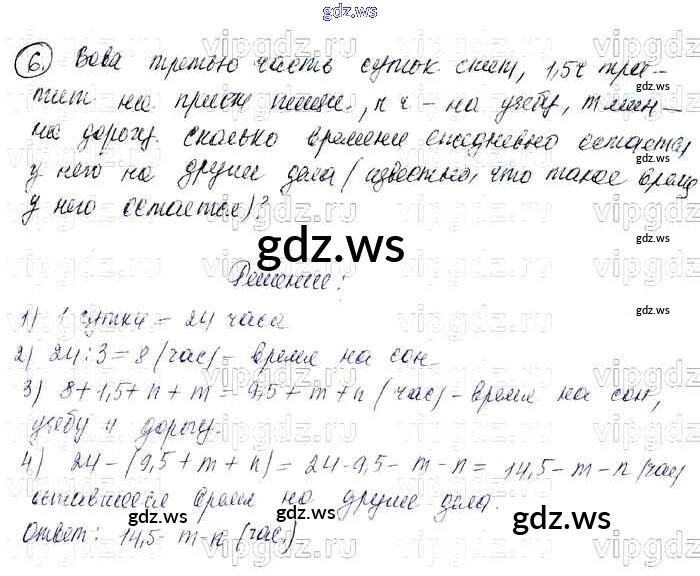 gdz.ws
6. Вова третью часть суток спит, 1,5ч тра-
тит на прием пищи, n ч - на учебу, m мин -
на дорогу. Сколько времени ежедневно остается
у него на другие дела (известно, что такое время
у него остается)?
gdz.ws
Решение:
1) 1 сутки = 24 часа
2) 24:3=8 (час) - время на сон
3) 8+1,5+n+m = 9,5+m+n (час) - время на сон,
учебу и дорогу.
4) 24 - (9,5+m+n) = 24-9,5-m-n = 14,5-m-n (час)
оставшееся время на другие дела.
gdz.ws gdz.ws
Ответ: 14,5-m-n (час).
gdz.ws
vipgdz